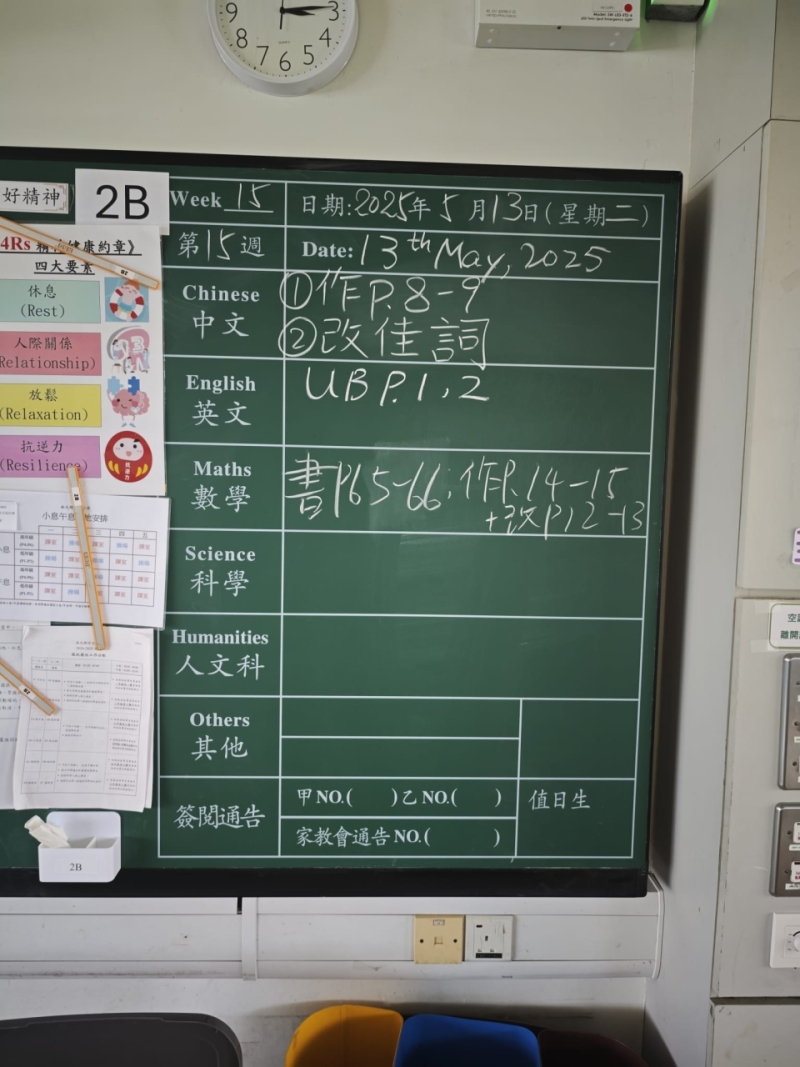 9 3
8 4
7 6 5
好精神
2B
Week 15
日期:2025年5月13日(星期二)
第15週
Date: 13th May, 2025
4Rs 精 健康約章》
四大要素
休息
(Rest)
人際關係
Relationship)
放鬆
(Relaxation)
抗逆力
(Resilience)
Chinese
中文
①作P.8-9
②改佳詞
English
英文
UB P.1,2
Maths
數學
書P65-66;作P.14-15
+改P.12-13
Science
科學
Humanities
人文科
Others
其他
簽閱通告
甲NO.( )乙NO.( )
家教會通告NO.( )
值日生
小息午息 地安排
一 二 三 四 五
2B
空
離開